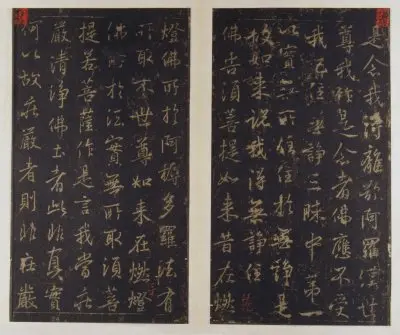 是念我得離欲阿羅漢世
尊我是念者佛應不受
我靜三昧中第一
以實無所住住於無諍是
故如來說我得無諍住
佛告須菩提如來昔在燃
燈佛所於阿耨多羅法有
所取不世尊如來在燃燈
佛所於法實無所取須菩
提若菩薩作是言我當莊
嚴清淨佛土者此非真實
何以故莊嚴者則非莊嚴